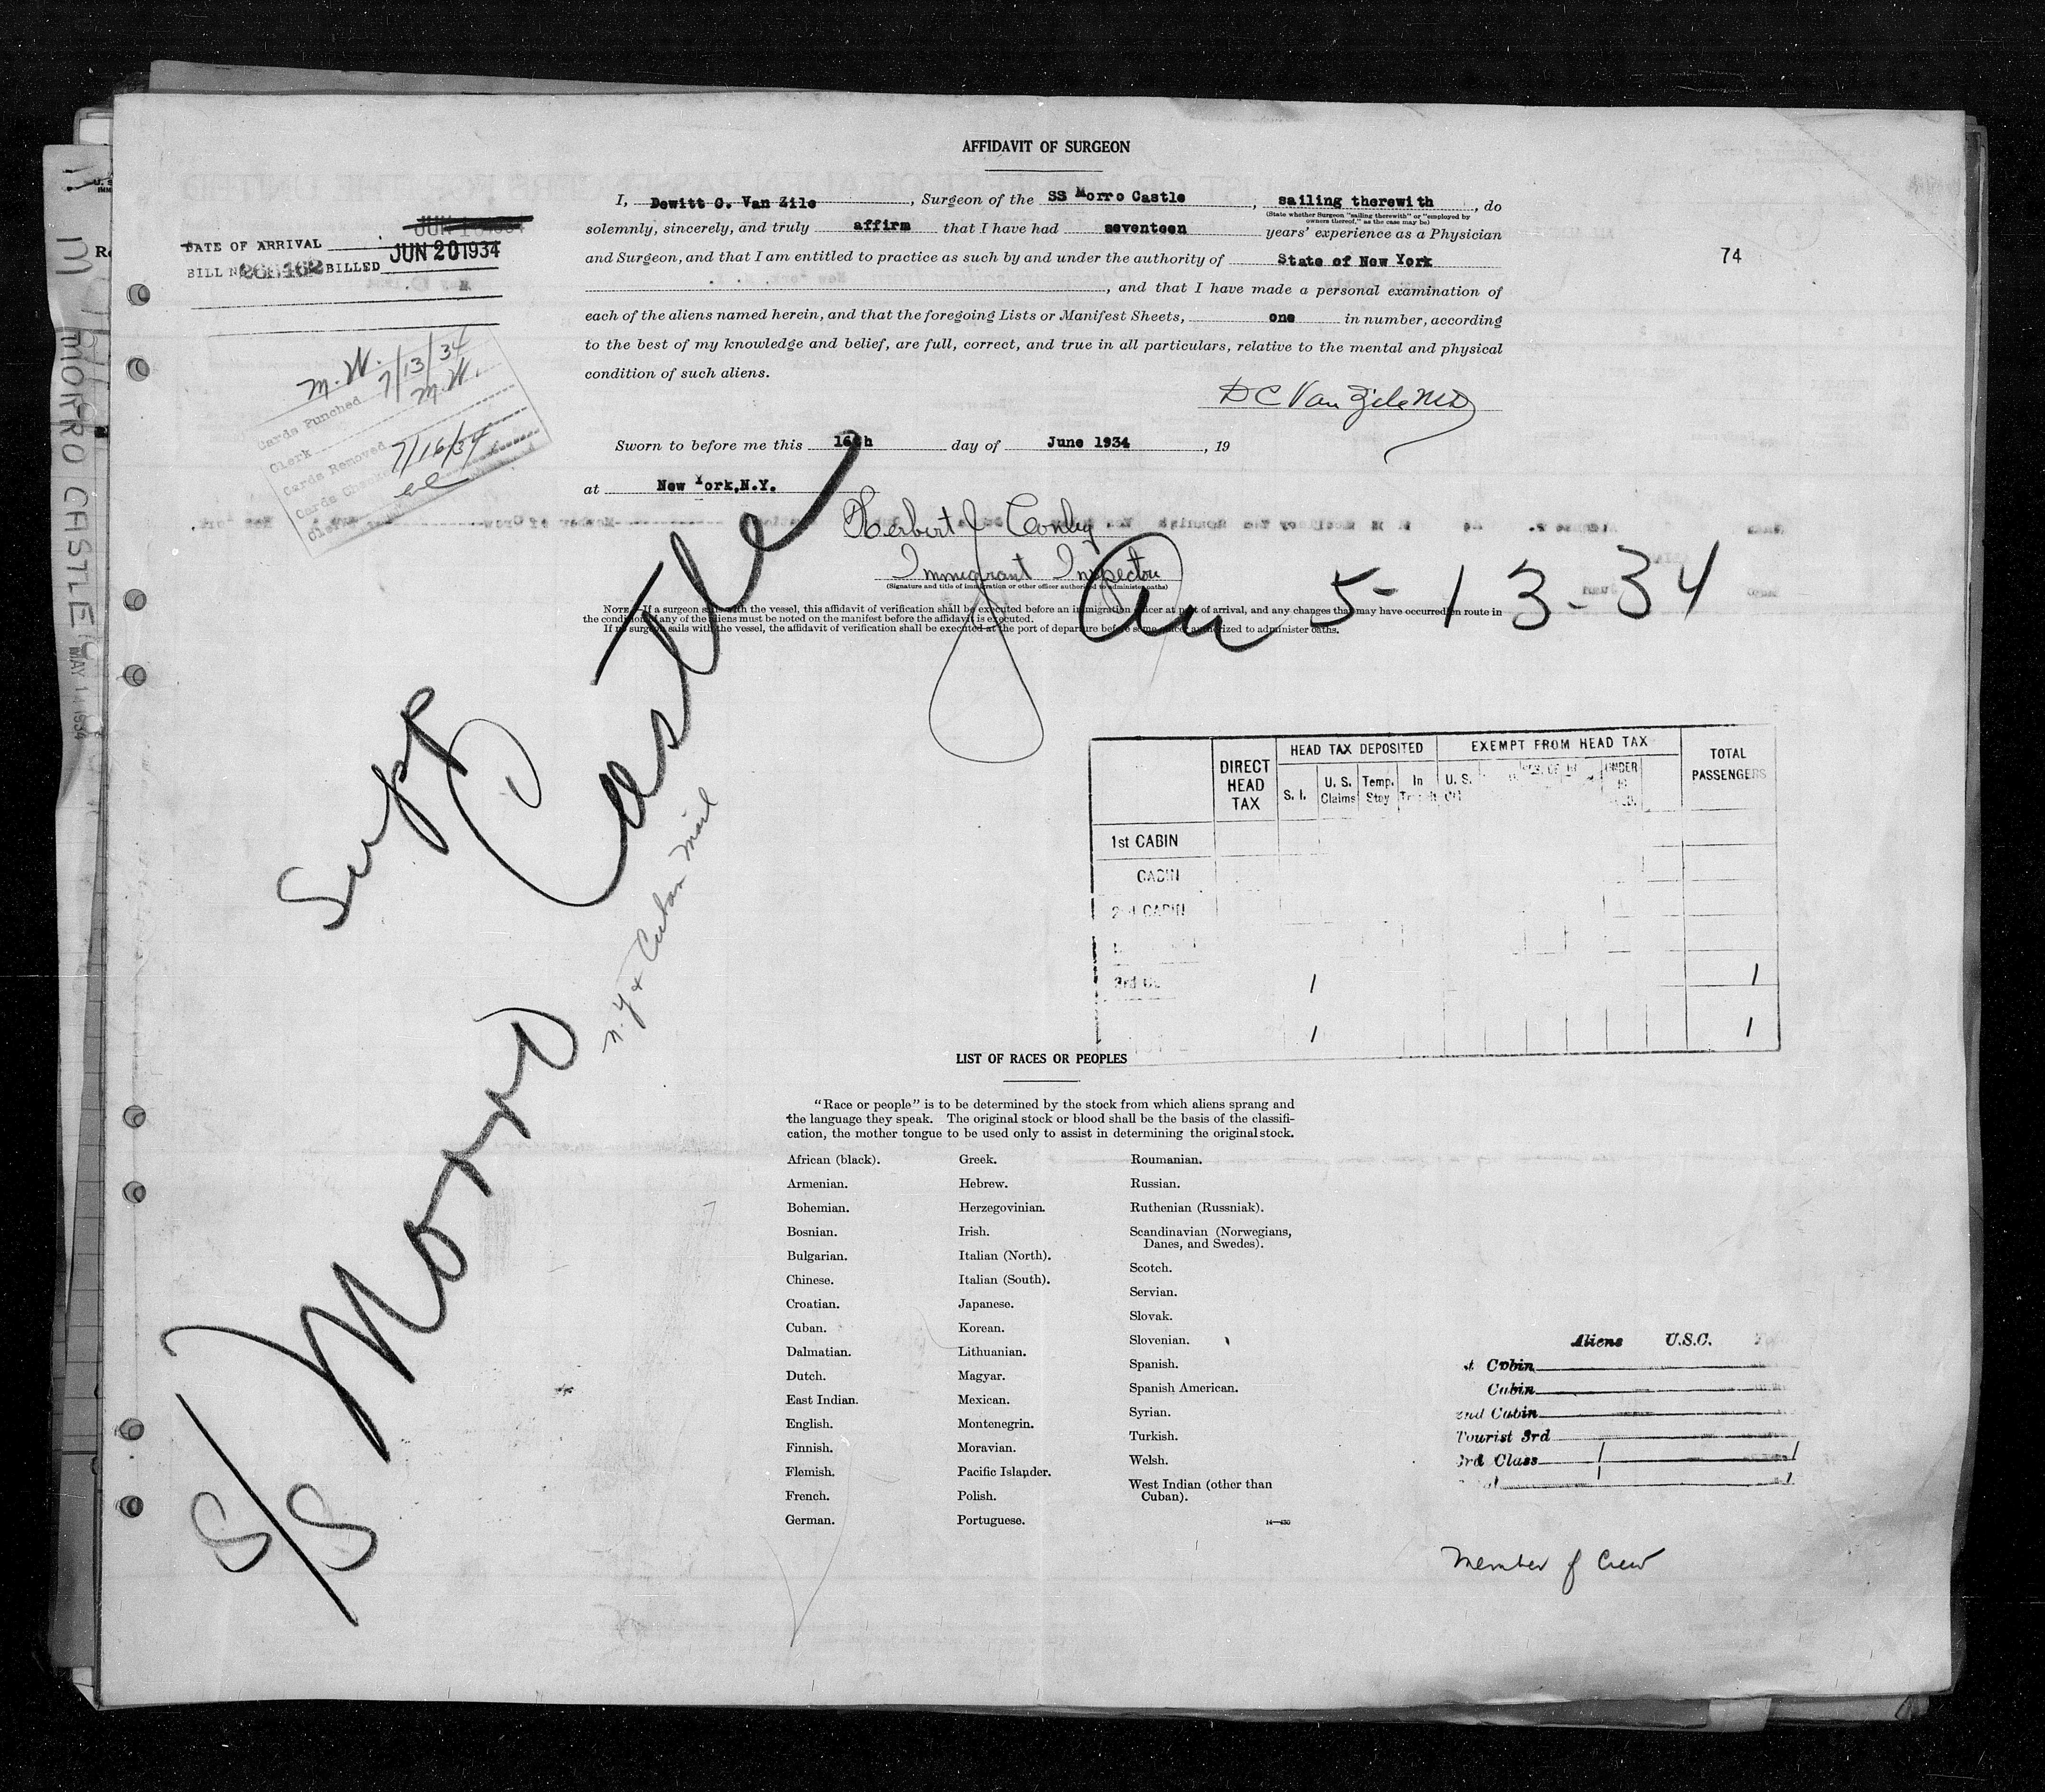 AFFIDAVIT OF SURGEON
I, Dewitt C. Van Zile, Surgeon of the SS Morro Castle, sailing therewith, do
(State whether Surgeon "sailing therewith" or "employed by
owners thereof," as the case may be)
solemnly, sincerely, and truly affirm that I have had seventeen years' experience as a Physician
and Surgeon, and that I am entitled to practice as such by and under the authority of State of New York
, and that I have made a personal examination of
each of the aliens named herein, and that the foregoing Lists or Manifest Sheets, one in number, according
to the best of my knowledge and belief, are full, correct, and true in all particulars, relative to the mental and physical
condition of such aliens.
D C Van Zile MD
Sworn to before me this 16th day of June 1934, 19
at New York, N.Y.
Herbert J Conley
Immigrant Inspector
(Signature and title of immigration or other officer authorized to administer oaths)
NOTE.—If a surgeon sails with the vessel, this affidavit of verification shall be executed before an immigration officer at port of arrival, and any changes that may have occurred en route in
the condition of any of the aliens must be noted on the manifest before the affidavit is executed.
If no surgeon sails with the vessel, the affidavit of verification shall be executed at the port of departure before some officer authorized to administer oaths.
74
DATE OF ARRIVAL
JUN 20 1934
BILL N BILLED
M.W. 7/13/34
Cards Punched
M.W.
Clerk
Cards Removed 7/16/34
Cards Checked
MORRO CASTLE
MAY 1934
Supp
S/S Morro Castle
N.Y & Cuban Mail
Arr 5-13-34
DIRECT HEAD TAX
HEAD TAX DEPOSITED
EXEMPT FROM HEAD TAX
TOTAL PASSENGERS
S. I. U. S. Claims Temp. Stay In U. S. UNDER
1st CABIN
CABIN
2nd CABIN
3rd 1 1
1 1
LIST OF RACES OR PEOPLES
"Race or people" is to be determined by the stock from which aliens sprang and
the language they speak. The original stock or blood shall be the basis of the classifi-
cation, the mother tongue to be used only to assist in determining the original stock.
African (black).
Armenian.
Bohemian.
Bosnian.
Bulgarian.
Chinese.
Croatian.
Cuban.
Dalmatian.
Dutch.
East Indian.
English.
Finnish.
Flemish.
French.
German.
Greek.
Hebrew.
Herzegovinian.
Irish.
Italian (North).
Italian (South).
Japanese.
Korean.
Lithuanian.
Magyar.
Mexican.
Montenegrin.
Moravian.
Pacific Islander.
Polish.
Portuguese.
Roumanian.
Russian.
Ruthenian (Russniak).
Scandinavian (Norwegians,
Danes, and Swedes).
Scotch.
Servian.
Slovak.
Slovenian.
Spanish.
Spanish American.
Syrian.
Turkish.
Welsh.
West Indian (other than
Cuban).
14—430
Aliens U.S.C.
Cabin
Cabin
2nd Cabin
Tourist 3rd
3rd Class 1 1
1 1
Member of Crew